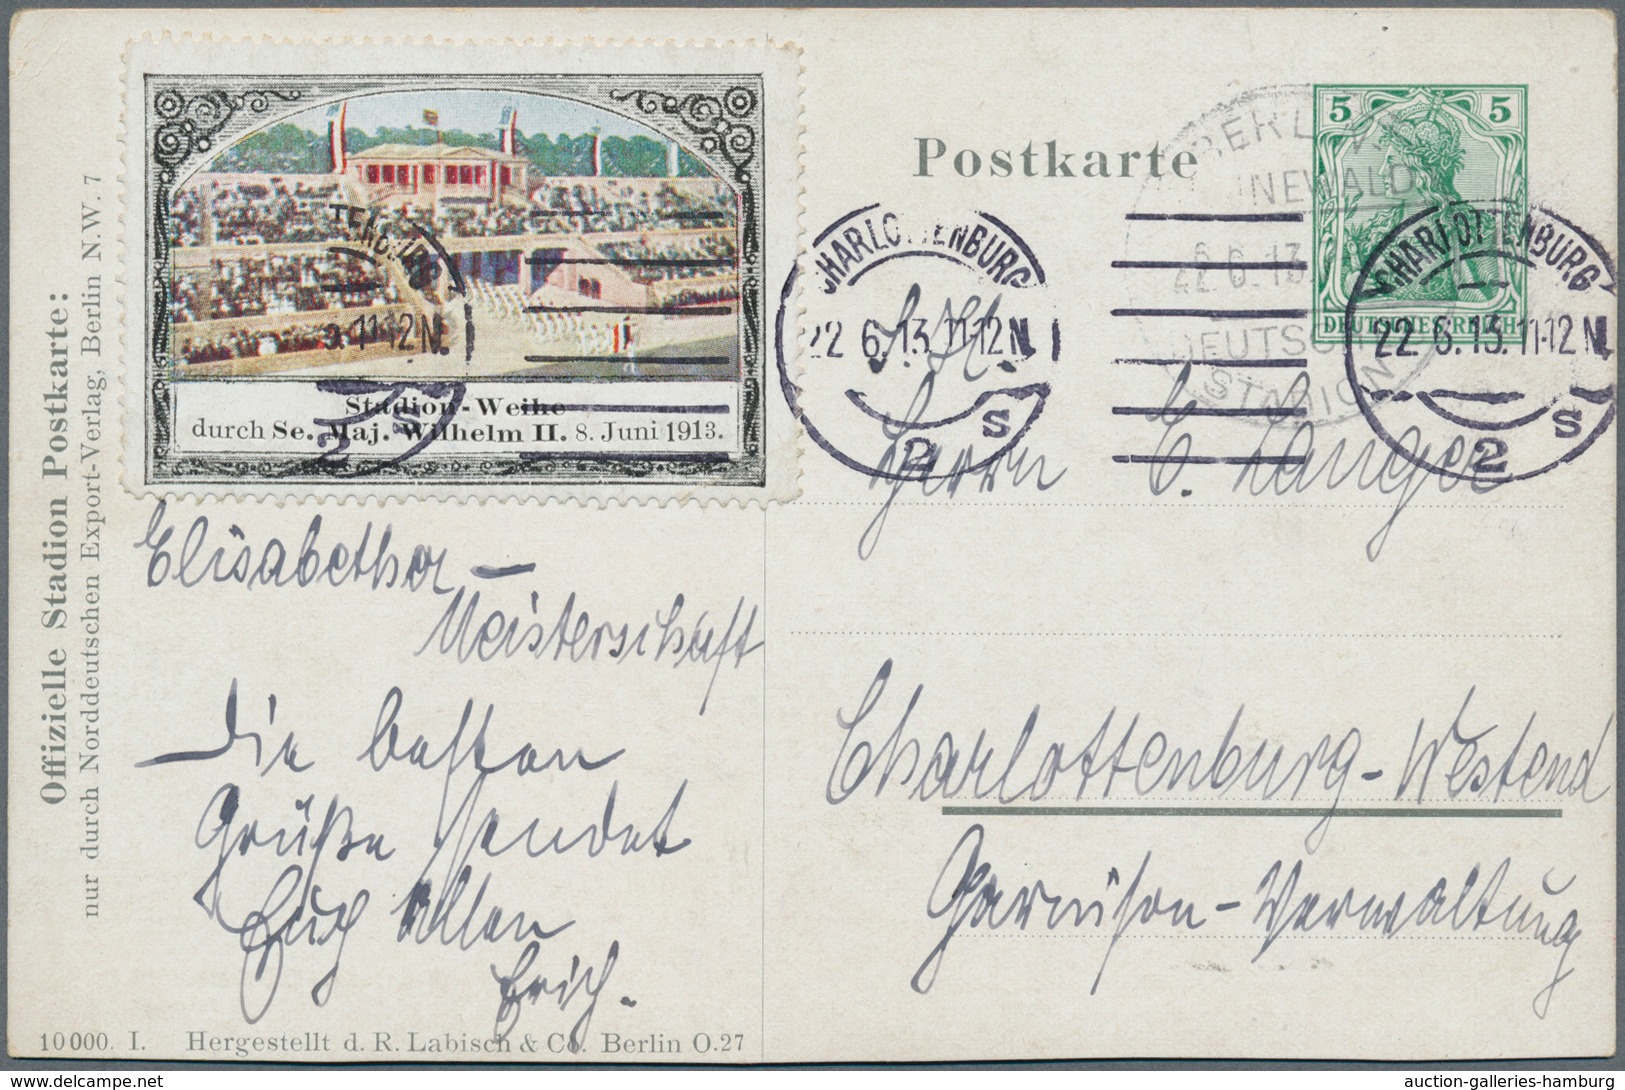 Offizielle Stadion Postkarte:
nur durch Norddeutschen Export-Verlag, Berlin N.W. 7
Stadion-Weihe
durch Se. Maj. Wilhelm II. 8. Juni 1913.
TENBURG
11-12 N.
2 s
Postkarte
5 5
DEUTSCHES REICH
BERLIN
GRUNEWALD
22.6.13
DEUTSCHES
STADION
CHARLOTTENBURG
22.6.13.11-12N.
2 s
CHARLOTTENBURG
22.6.13.11-12N.
2 s
Elisabether-
Meisterschaft
Die besten
Grüße sendet
Euch Allen
Erich.
Herrn C. Langer
Charlottenburg-Westend
Garnison-Verwaltung
10000. I. Hergestellt d. R. Labisch & Co. Berlin O.27
auction-galleries-hamburg
delcampe.net